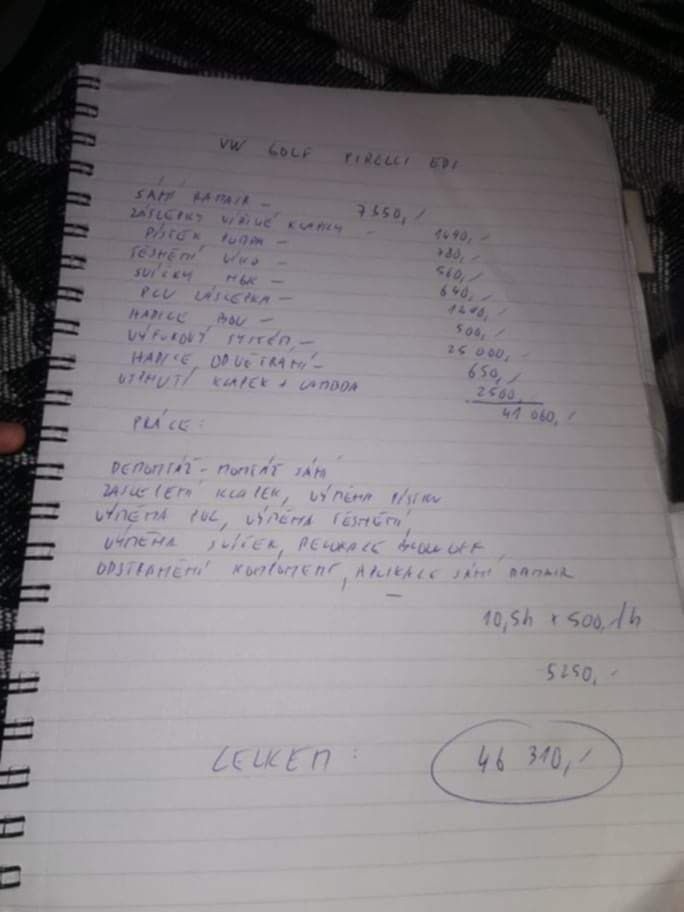 VW GOLF PIRELLI EDI
SÁNÍ RAMAIR - 7350,-
ZÁSLEPKY VÍŘIVÉ KLAPKY - 1490,-
PÍSTEK PUMPA - 780,-
TĚSNĚNÍ VÍKO - 560,-
SVÍČKY NGK - 640,-
PCV ZÁSLEPKA - 1290,-
HADICE BOV - 500,-
VÝFUKOVÝ SYSTÉM, - 25 000,-
HADICE ODVĚTRÁNÍ - 650,-
VYPNUTÍ KLAPEK + LAMBDA 2500,-
41 060,-
PRÁCE:
DEMONTÁŽ - MONTÁŽ SÁNÍ
ZASLEPENÍ KLAPEK, VÝMĚNA PÍSTKU
VÝMĚNA VÝMĚNA TĚSNĚNÍ,
VÝMĚNA SVÍČEK,
ODSTRANĚNÍ KOMPONENT, APLIKACE SÁNÍ RAMAIR
10,5h x 500,-/h
5250,-
CELKEM: 46 310,-